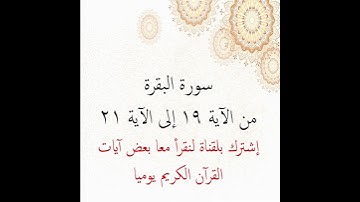 سورة البقرة
من الآية ١٩ إلى الآية ٢١
إشترك بلقناة لنقرأ معا بعض آيات
القرآن الكريم يوميا